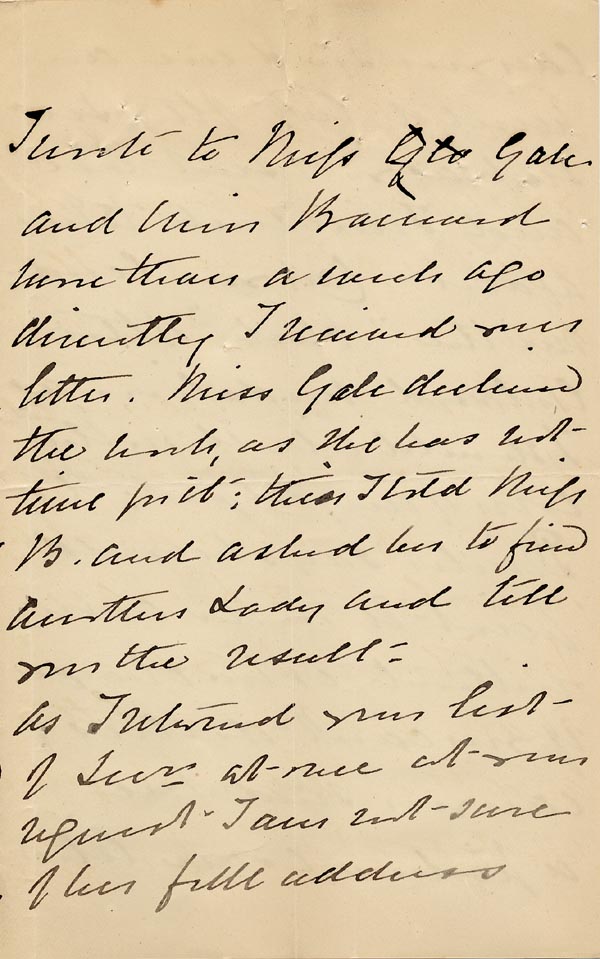 I wrote to Miss Gale
and Miss Barnard
more than a week ago
directly I received your
letter. Miss Gale declined
the work, as she has not
time for it; this I told Miss
B. and asked her to find
another Lady and tell
you the result –
As I returned your list
of Secrs at once at your
request I am not sure
of her full address